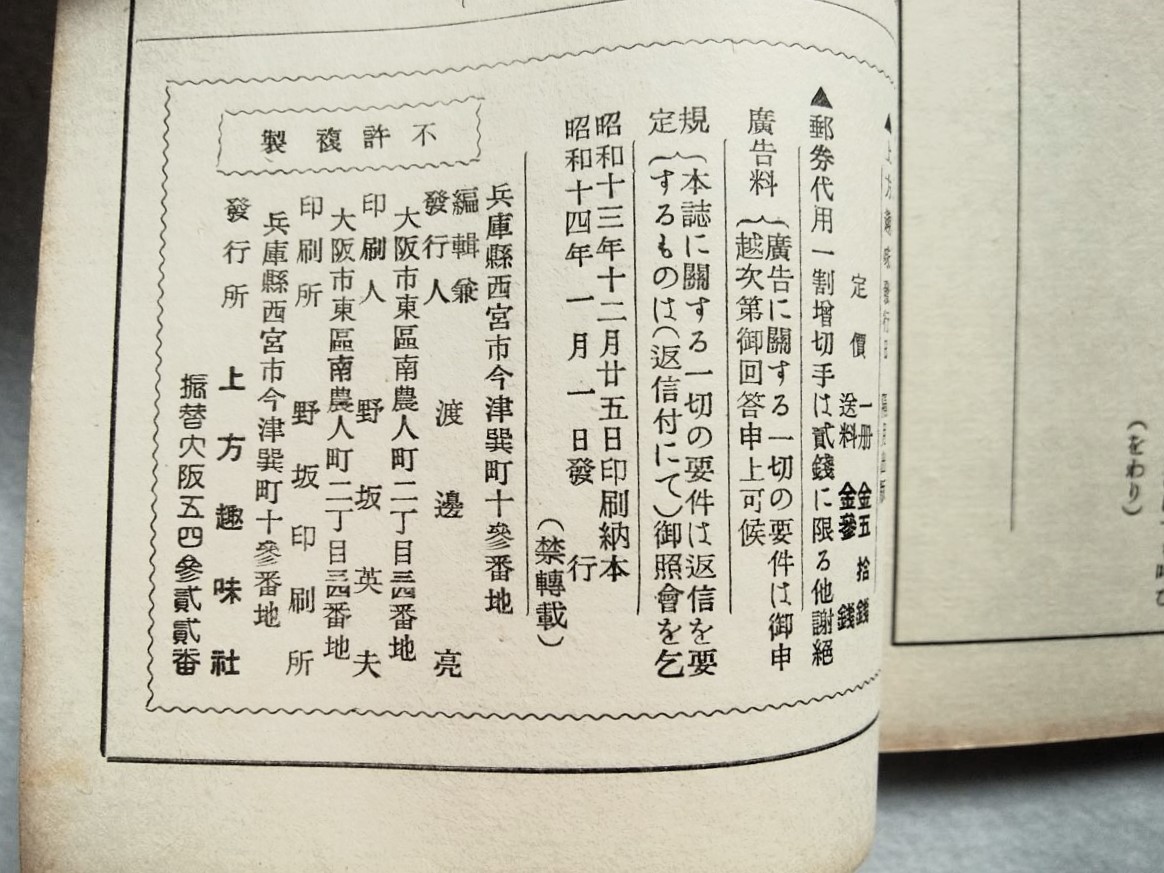 (をわり)
▲上方趣味發行日
定價
一册 金五拾錢
送料 金參錢
▲郵券代用一割增切手は貳錢に限る他謝絕
廣告料
廣告に關する一切の要件は御申
越次第御回答申上可候
規定
本誌に關する一切の要件は返信を要
するものは(返信付にて)御照會を乞
昭和十三年十二月廿五日印刷納本
昭和十四年一月一日發行
(禁轉載)
不許複製
兵庫縣西宮市今津巽町十參番地
編輯兼
發行人 渡邊亮
大阪市東區南農人町二丁目三四番地
印刷人 野坂英夫
大阪市東區南農人町二丁目三四番地
印刷所 野坂印刷所
兵庫縣西宮市今津巽町十參番地
發行所 上方趣味社
振替大阪五四參貳貳番